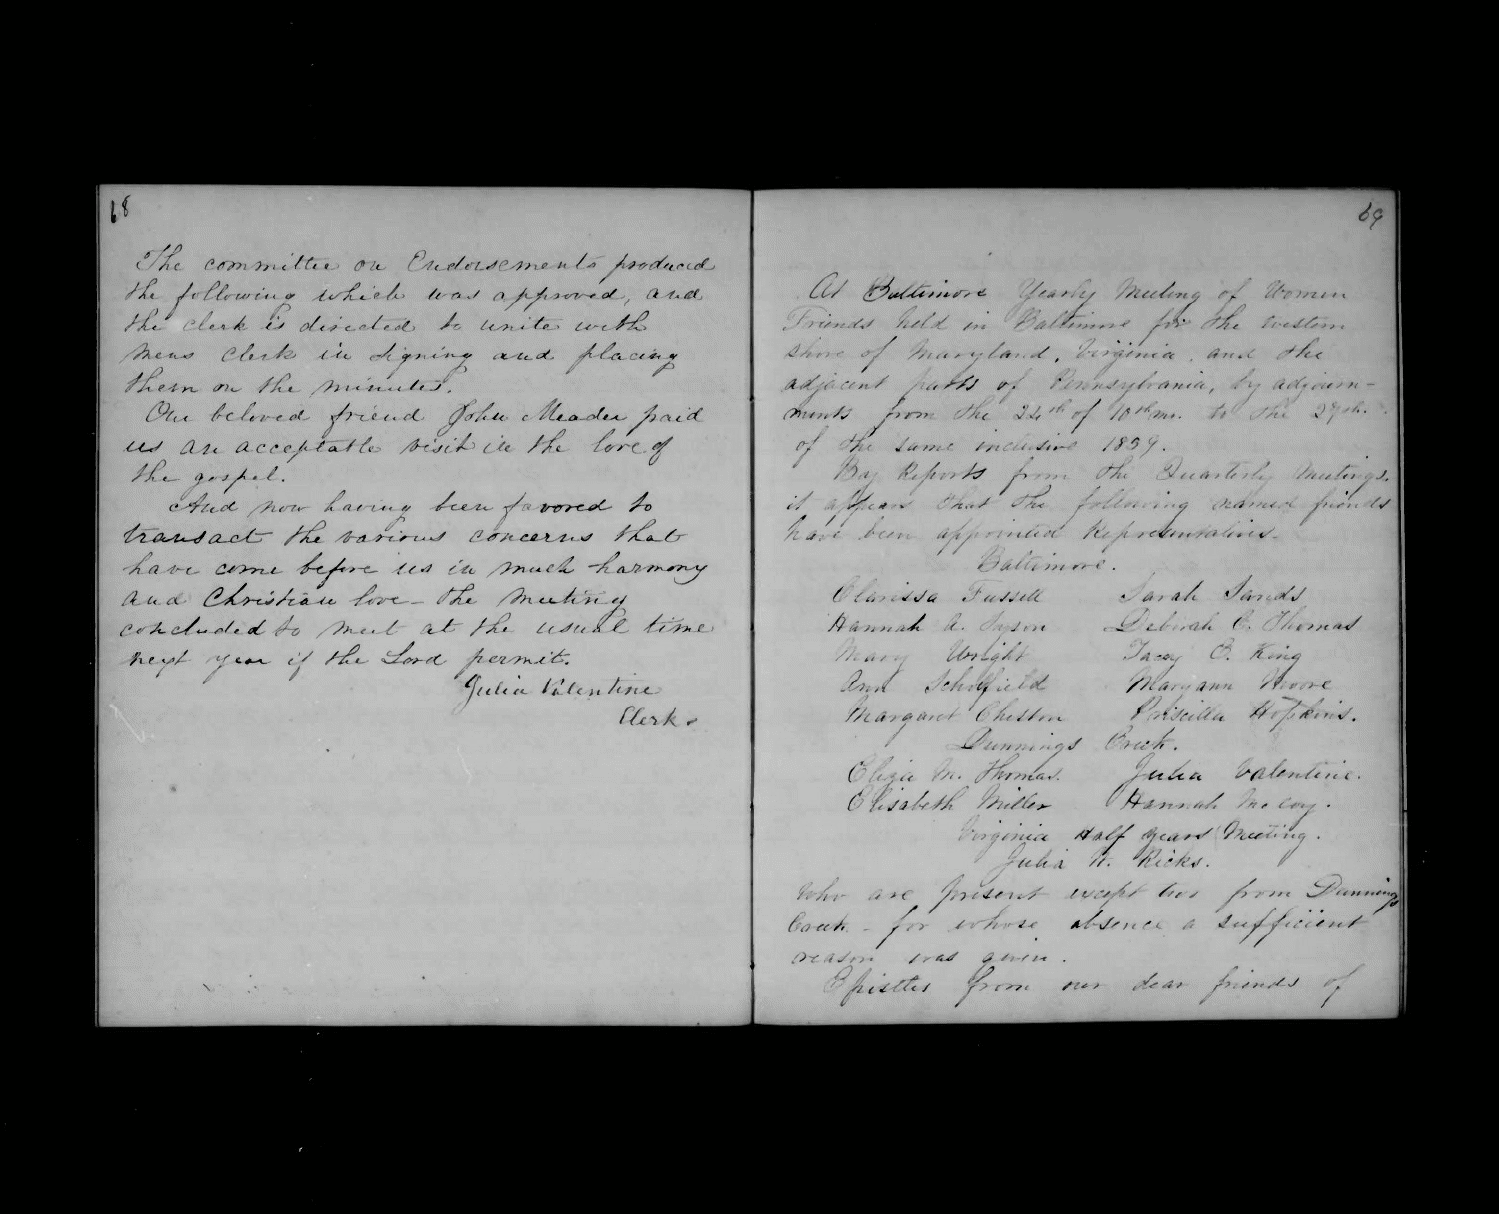 68
The committee on Endorsements produced
the following which was approved, and
the clerk is directed to unite with
mens clerk in signing and placing
them on the minutes.
Our beloved friend John Meader paid
us an acceptable visit in the love of
the gospel.
And now having been favored to
transact the various concerns that
have come before us in much harmony
and Christian love - the meeting
concluded to meet at the usual time
next year if the Lord permit.
Julia Valentine
Clerk.
69
At Baltimore Yearly Meeting of Women
Friends held in Baltimore for the western
shore of Maryland, Virginia, and the
adjacent parts of Pennsylvania, by adjourn-
ments from the 24th of 10th mo. to the 29th.
of the same inclusive 1859.
By Reports from the Quarterly Meetings,
it appears that the following named friends
have been appointed Representatives.
Baltimore.
Clarissa Fussell Sarah Sands
Hannah A. Tyson Deborah C. Thomas
Mary Wright Tacey B. King
Ann Schofield Maryann Moore
Margaret Cheston Priscilla Hopkins.
Dunnings Creek.
Eliza M. Thomas. Julia Valentine.
Elisabeth Miller Hannah McCoy.
Virginia Half years Meeting.
Julia W. Ricks.
Who are present except two from Dunnings
Creek - for whose absence a sufficient
reason was given.
Epistles from our dear friends of